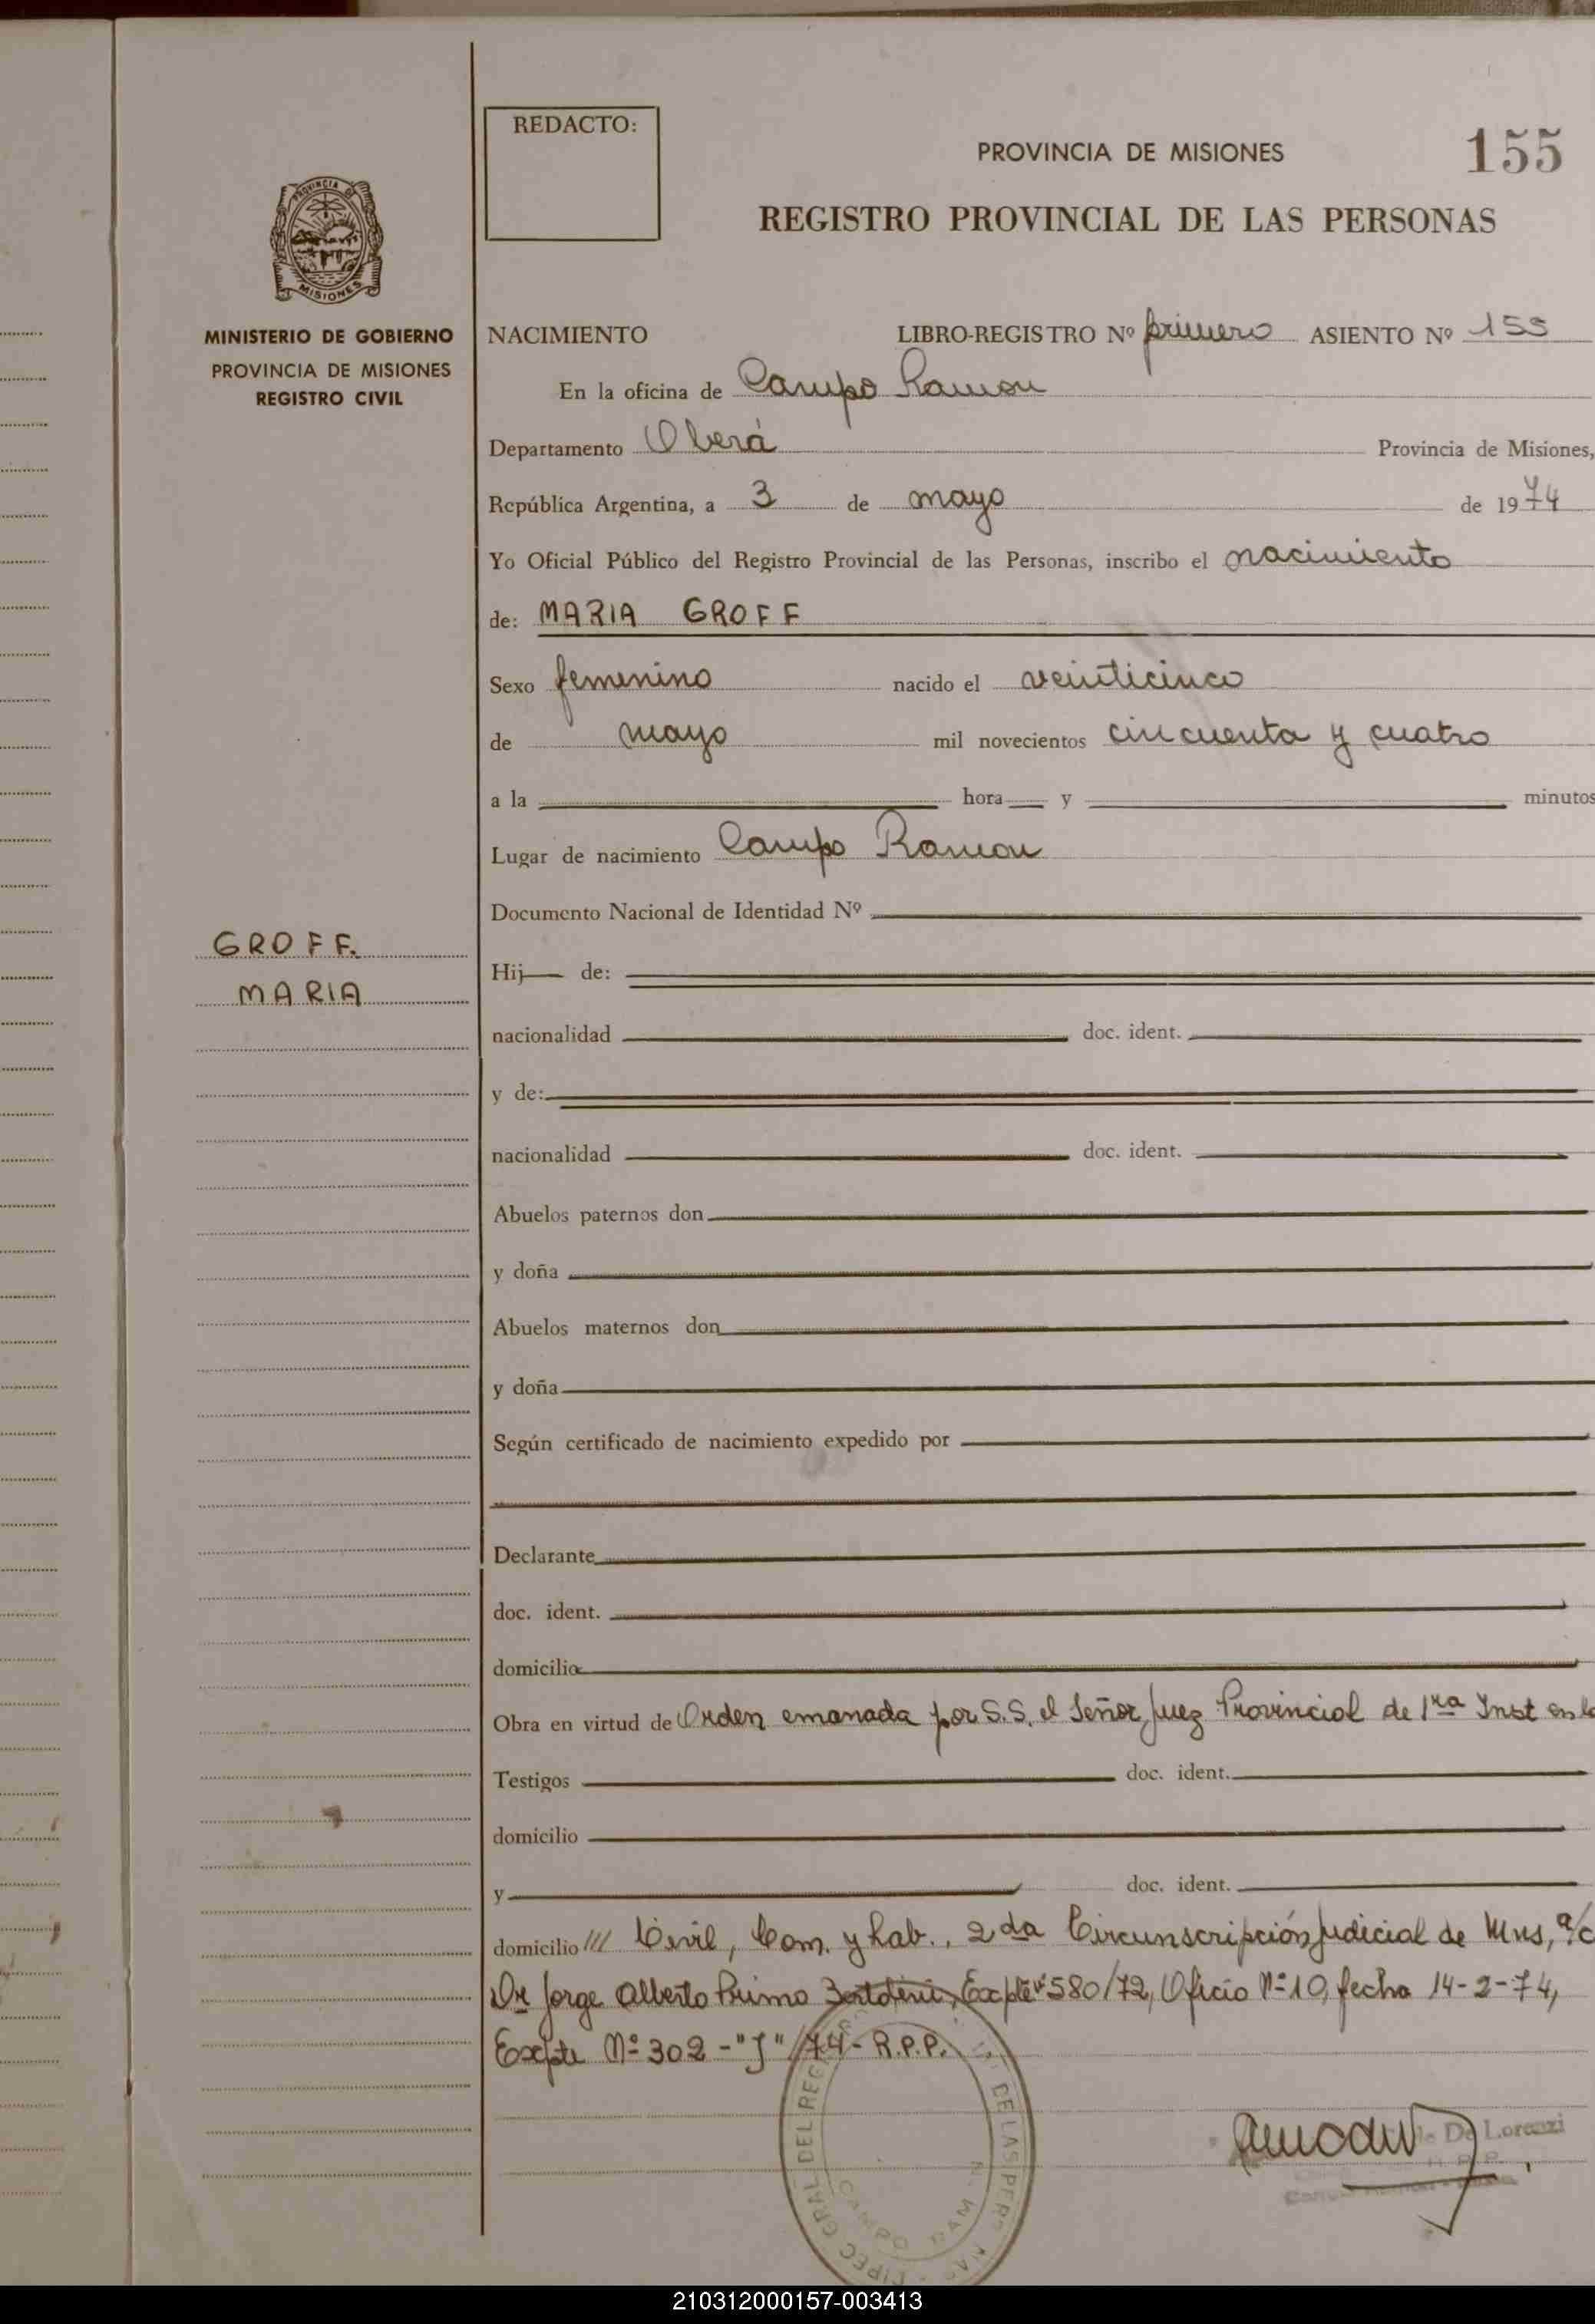 REDACTO:
PROVINCIA DE MISIONES
155
REGISTRO PROVINCIAL DE LAS PERSONAS
PROVINCIA DE
MISIONES
MINISTERIO DE GOBIERNO
PROVINCIA DE MISIONES
REGISTRO CIVIL
NACIMIENTO LIBRO-REGISTRO Nº primero ASIENTO Nº 155
En la oficina de Campo Ramon
Departamento Oberá Provincia de Misiones,
República Argentina, a 3 de mayo de 1974
Yo Oficial Público del Registro Provincial de las Personas, inscribo el nacimiento
de: MARIA GROFF
Sexo femenino nacido el veinticinco
de mayo mil novecientos cincuenta y cuatro
a la hora y minutos
Lugar de nacimiento Campo Ramon
Documento Nacional de Identidad Nº
GROFF.
MARIA
Hij de:
nacionalidad doc. ident.
y de:
nacionalidad doc. ident.
Abuelos paternos don
y doña
Abuelos maternos don
y doña
Según certificado de nacimiento expedido por
Declarante
doc. ident.
domicilio
Obra en virtud de Orden emanada por S.S. el Señor Juez Provincial de 1ra Inst en lo
Testigos doc. ident.
domicilio
y doc. ident.
domicilio /// Civil, Com. y Lab., 2da Circunscripción Judicial de Mns, a/c
Dr Jorge Alberto Primo Expte nº 580/72, Oficio Nº 10, fecha 14-2-74,
Expte Nº 302-"J"/74- R.P.P.
GRAL DEL REG DE LAS PERS
CAMPO RAM N
De Lorenzi
210312000157-003413